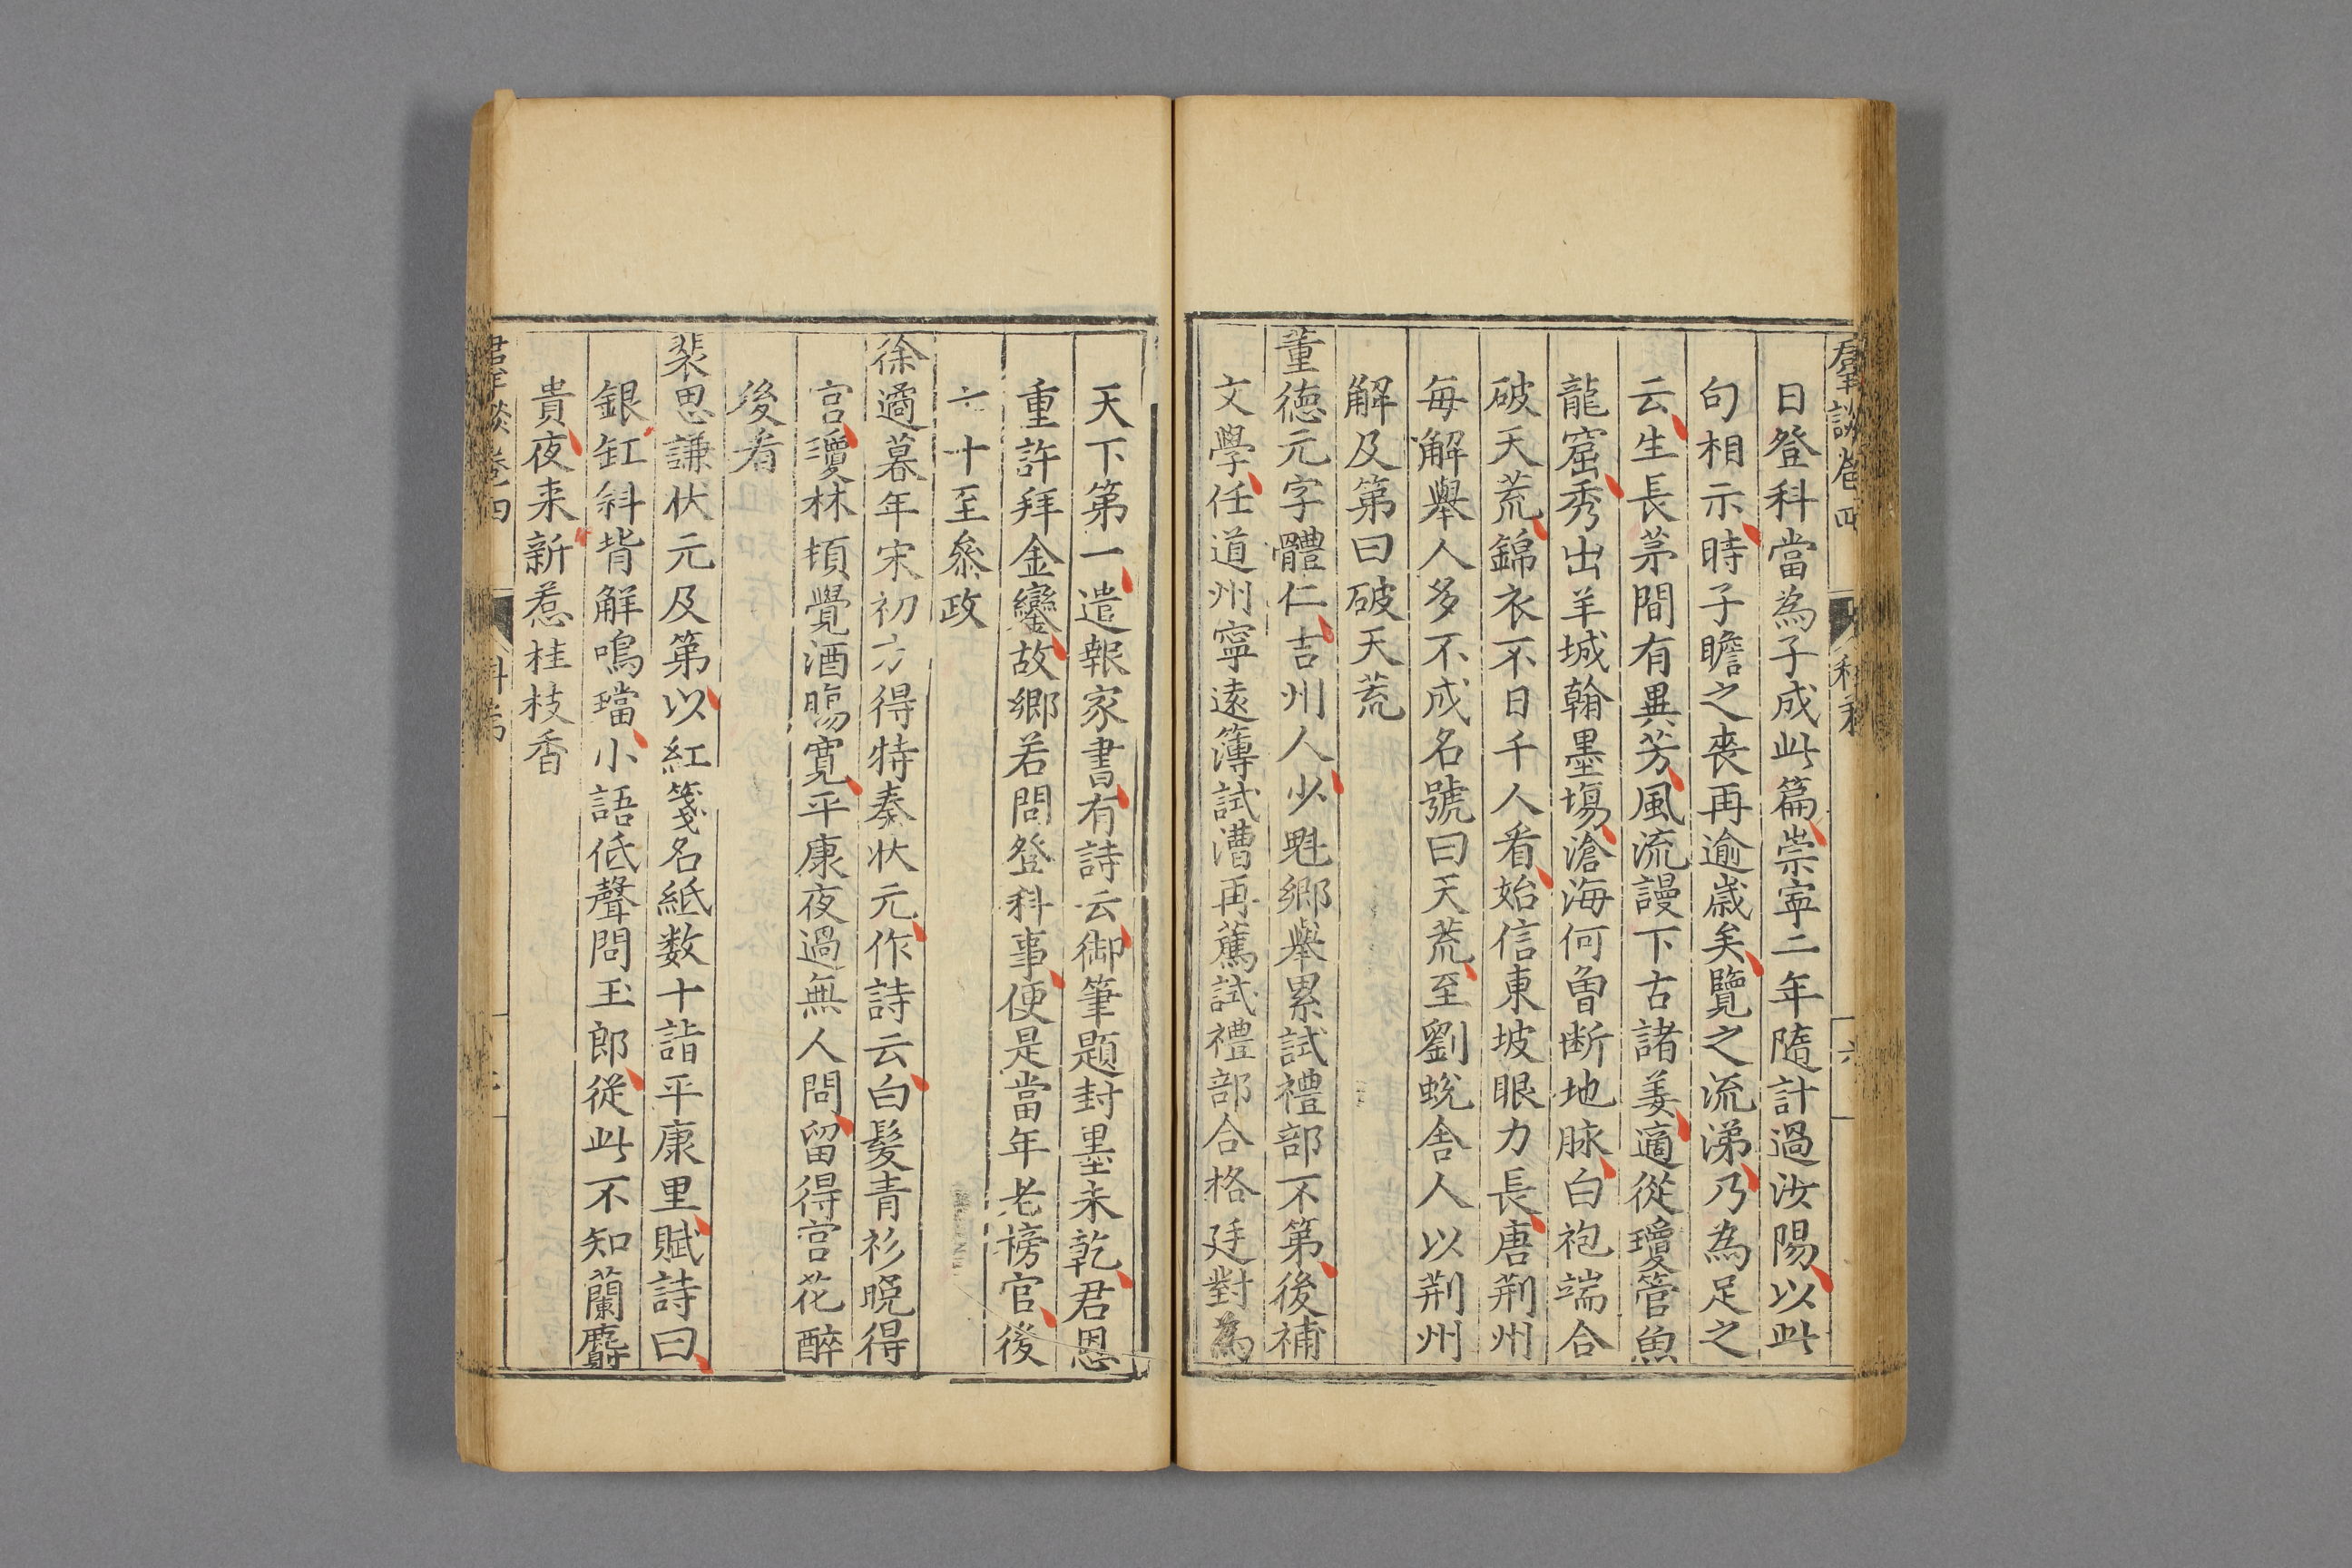 日登科當為子成此篇崇寧二年隨計過汝陽以此
句相示時子瞻之喪再逾歲矣覽之流涕乃為足之
云生長茅間有異芳風流謾下古諸姜適從瓊管魚
龍窟秀出羊城翰墨塲滄海何曾断地脉白袍端合
破天荒錦衣不日千人看始信東坡眼力長唐荆州
每解舉人多不成名號曰天荒至劉蛻舎人以荆州
解及第曰破天荒
董德元字體仁吉州人少魁鄉舉累試禮部不第後補
文學任道州寧遠簿試漕再薦試禮部合格廷對為
天下第一遣報家書有詩云御筆題封墨未乾君恩
重許拜金鑾故鄉若問登科事便是當年老榜官後
六十至叅政
徐遹暮年宋初方得特奏状元作詩云白髮青衫晚得
官瓊林頓覺酒腸寛平康夜過無人問留得宫花醉
後看
裴思謙状元及第以紅箋名紙数十詣平康里賦詩曰
銀缸斜背解鳴璫小語低聲問玉郎從此不知蘭麝
貴夜来新惹桂枝香